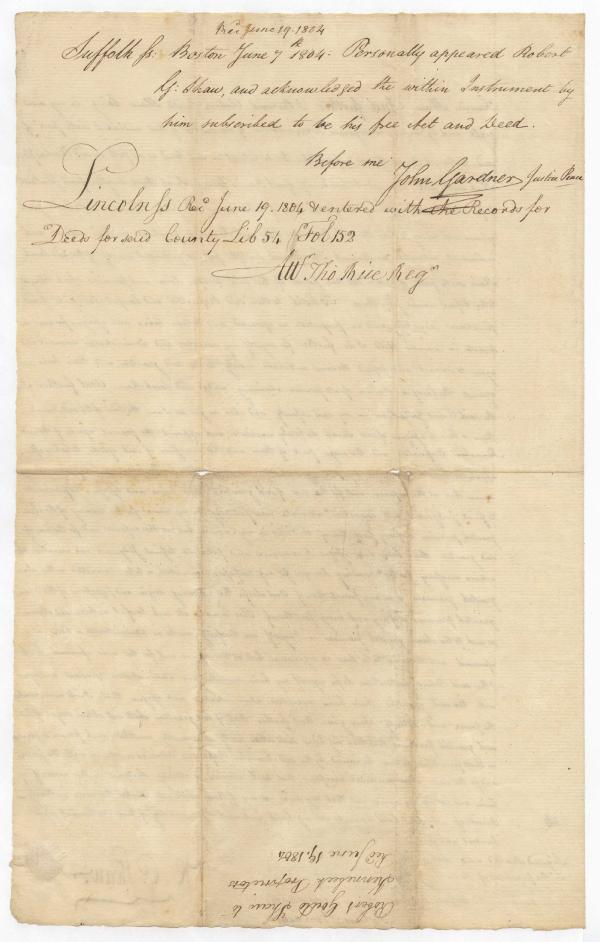 Recd June 19. 1804
Suffolk ss. Boston June 7th 1804. Personally appeared Robert
G. Shaw, and acknowledged the within Instrument by
him subscribed to be his free Act and Deed.
Before me John Gardner Justice Peace
Lincoln ss Recd June 19. 1804 & entered with the Records for
Deeds for said County Lib 54 Fol 152
Attt Tho Rice Regr
Robert Gould Shaw to
Kennebeck Proprietors
Recd June 19. 1804